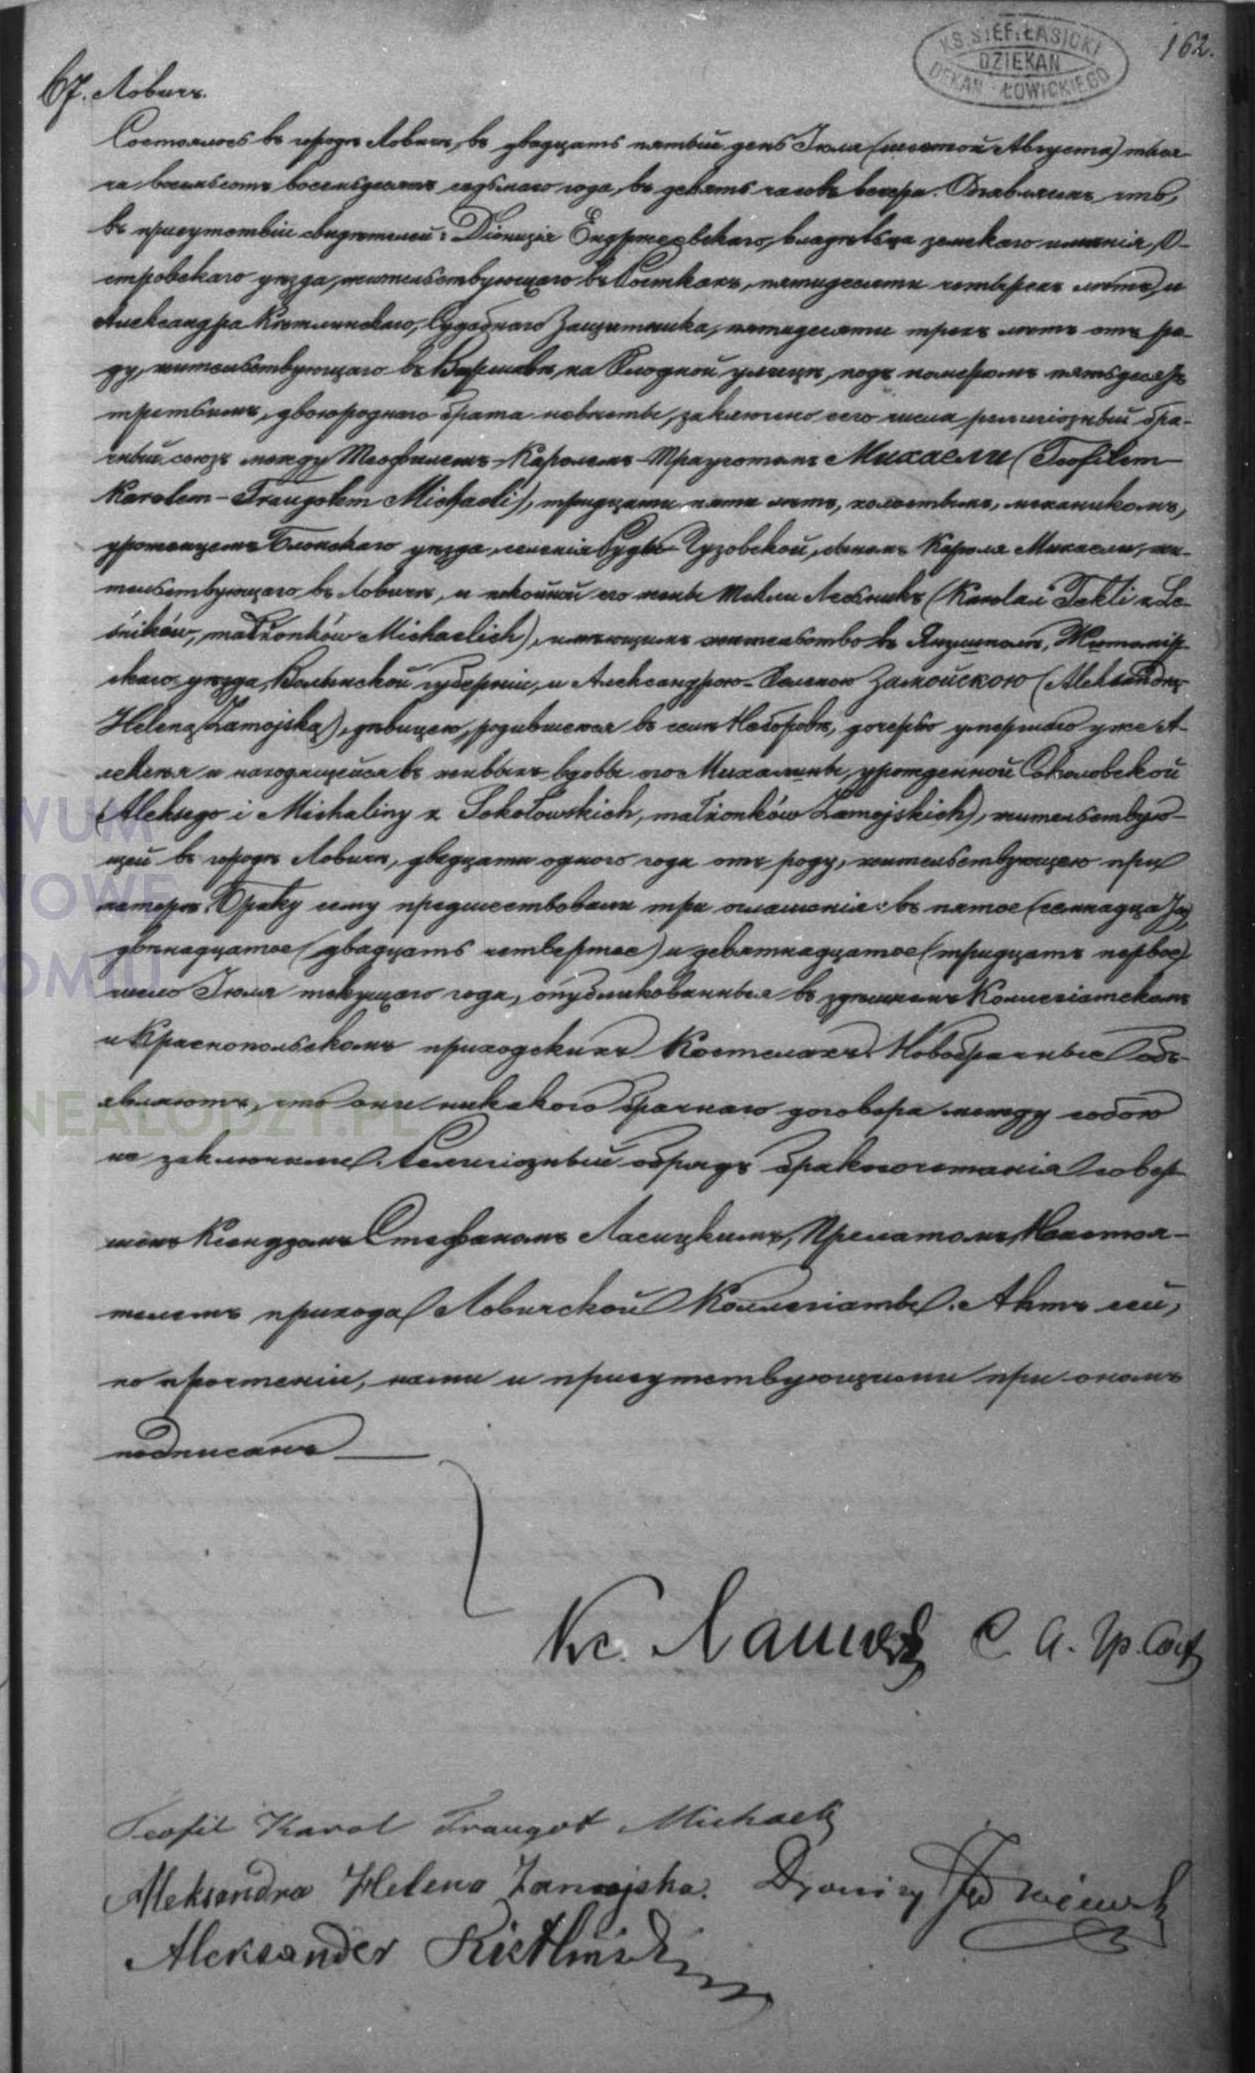 KS. STEF. ŁASICKI
DZIEKAN
DEKAN. ŁOWICKIEGO
162.
67. Ловичъ.
Состоялось въ городѣ Ловичѣ, въ двадцать пятый день Іюля (шестой Августа) тыся-
ча восемьсотъ восемьдесятъ седьмаго года, въ девять часовъ вечера. Объявляемъ, что,
въ присутствіи свидѣтелей: Діонизія Ендржеевскаго, владѣльца земскаго имѣнія, О-
стровскаго уѣзда, жительствующаго въ Косткахъ, пятидесяти четырехъ лѣтъ, и
Александра Кѣтлинскаго, Судебнаго Защитника, пятидесяти трехъ лѣтъ отъ ро-
ду, жительствующаго въ Варшавѣ, на Хлодной улицѣ, подъ номеромъ пятьдесятъ
третьимъ, двоюроднаго брата невѣсты, заключенъ сего числа религіозный бра-
чный союзъ между Теофилемъ-Каролемъ-Трауготомъ Михаели (Teofilem
Karolem-Traugotem Michaeli), тридцати пяти лѣтъ, холостымъ, механикомъ,
уроженцемъ Блонскаго уѣзда, селенія Руды Гузовской, сыномъ Кароля Михаели, жи-
тельствующаго въ Ловичѣ, и покойной его жены Текли Лесникъ (Karola i Tekli z Le-
śników, małżonków Michaelich), имѣющимъ жительство въ Янушполѣ, Житомір-
скаго уѣзда, Волынской губерніи, и Александрою-Еленою Замойскою (Aleksandrą
Heleną Zamojską), дѣвицею, родившеюся въ селѣ Неборовѣ, дочерью умершаго уже А-
лексѣя и находящейся въ живыхъ вдовы его Михалины, урожденной Соколовской
(Aleksego i Michaliny z Sokołowskich, małżonków Zamojskich), жительствую-
щей въ городѣ Ловичѣ, двадцати одного года отъ роду, жительствующею при
матери. Браку сему предшествовали три оглашенія: въ пятое (семнадцатое),
двѣнадцатое (двадцать четвертое) и девятнадцатое (тридцать первое)
число Іюля текущаго года, опубликованныя въ здѣшнемъ Коллегіатскомъ
и Краснопольскомъ приходскихъ Костелахъ. Новобрачные объ-
являютъ, что они никакого брачнаго договора между собою
не заключили. Религіозный обрядъ бракосочетанія совер-
шенъ Ксендзомъ Стефаномъ Ласицкимъ, Прелатомъ, Настоя-
телемъ прихода Ловичской Коллегіаты. Актъ сей,
по прочтеніи, нами и присутствующими при ономъ
подписанъ
Кс. Ласицкій С. А. Гр. Сост.
Teofil Karol Traugot Michaeli
Aleksandra Helena Zamojska. Dyonizy Jędrzejewski
Aleksander Kietliński